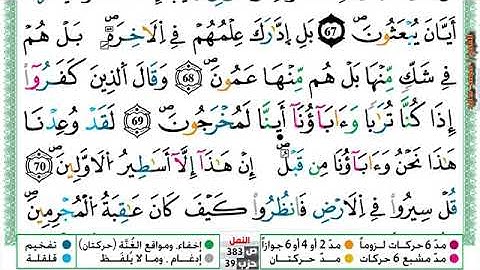 أَيَّانَ يُبْعَثُونَۖ 67 بَلِ اِدَّٰرَكَ عِلْمُهُمْ فِي اِلَاخِرَةِۖ بَلْ هُمْ
فِي شَكٍّ مِّنْهَا بَلْ هُم مِّنْهَا عَمُونَۖ 68 وَقَالَ اَلذِينَ كَفَرُوٓاْ
إِذَا كُنَّا تُرَٰباً وَءَابَآؤُنَآ أَينَّا لَمُخْرَجُونَۖ 69 لَقَدْ وُعِدْنَا
هَٰذَا نَحْنُ وَءَابَآؤُنَا مِن قَبْلُۖ إِنْ هَٰذَآ إِلَّآ أَسَٰطِيرُ اُلَاوَّلِينَۖ 70
قُلْ سِيرُواْ فِي اِلَارْضِ فَانظُرُواْ كَيْفَ كَانَ عَٰقِبَةُ اُلْمُجْرِمِينَۖ
مدّ 6 حركات لزوماً مدّ 2 أو 4 أو 6 جوازاً النمل ص 383 إخفاء، ومواقع الغُنَّة (حركتان) تفخيم
مدّ مشبع 6 حركات مدّ حركتان حزب 39 إدغام، وما لا يُلفَظ قلقلة